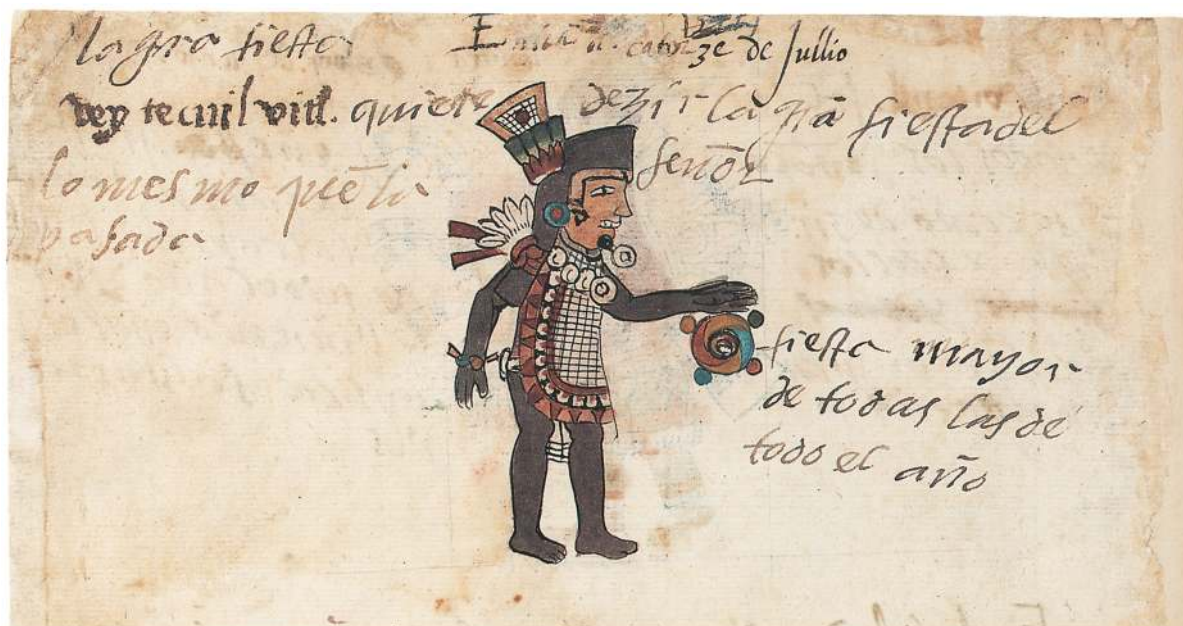 la gra fiesta
Entra a. catorze de Jullio
vey tecuil vitl. quiere dezir la grā fiesta del señor
lo mesmo que la
pasada
fiesta mayor
de todas las de
todo el año